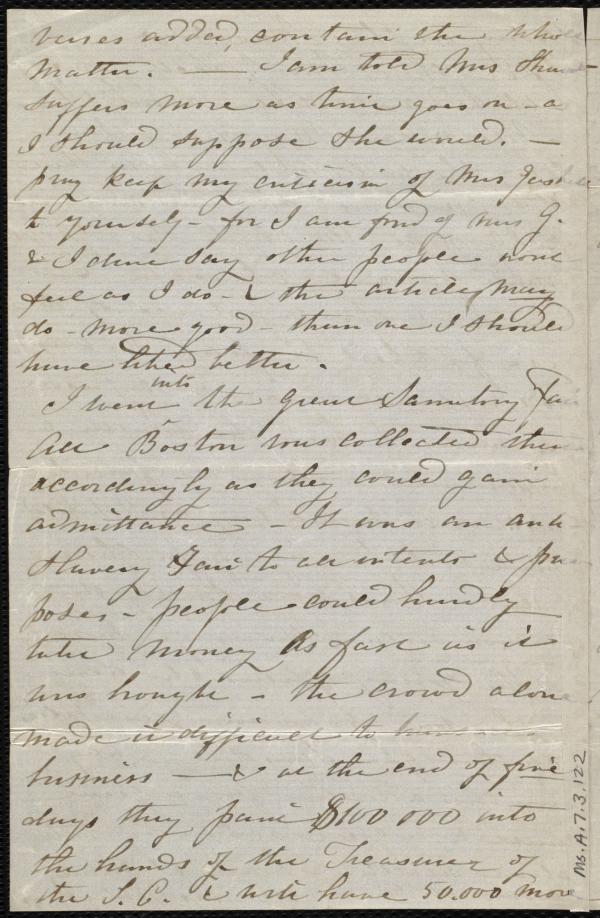 verses added, contain the whole
matter. — I am told Mrs Shaw
suffers more as time goes on - as
I should suppose she would. —
pray keep my criticism of Mrs
to yourself - for I am fond of Mrs G.
& I dare say other people wont
feel as I do - & the article may
do - more good - than one I should
have liked better.
I went into the great Sanitary Fair
All Boston was collected there
accordingly as they could gain
admittance - It was an anti
Slavery Fair to all intents & pur
poses - people could hardly
take money as fast as it
was brought - the crowd alone
made it difficult to
business — & at the end of five
days they paid $100 000 into
the hands of the Treasurer of
the S. C. & will have 50.000 more
Ms. A.7.3.122